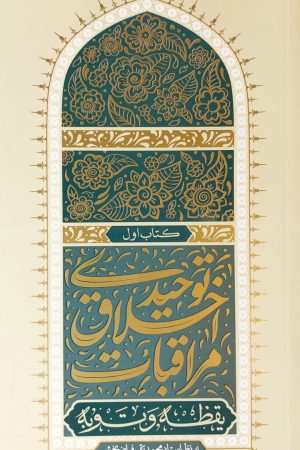 کتاب اول
مراقبات
اخلاق
توحیدی
یقظه و توبه